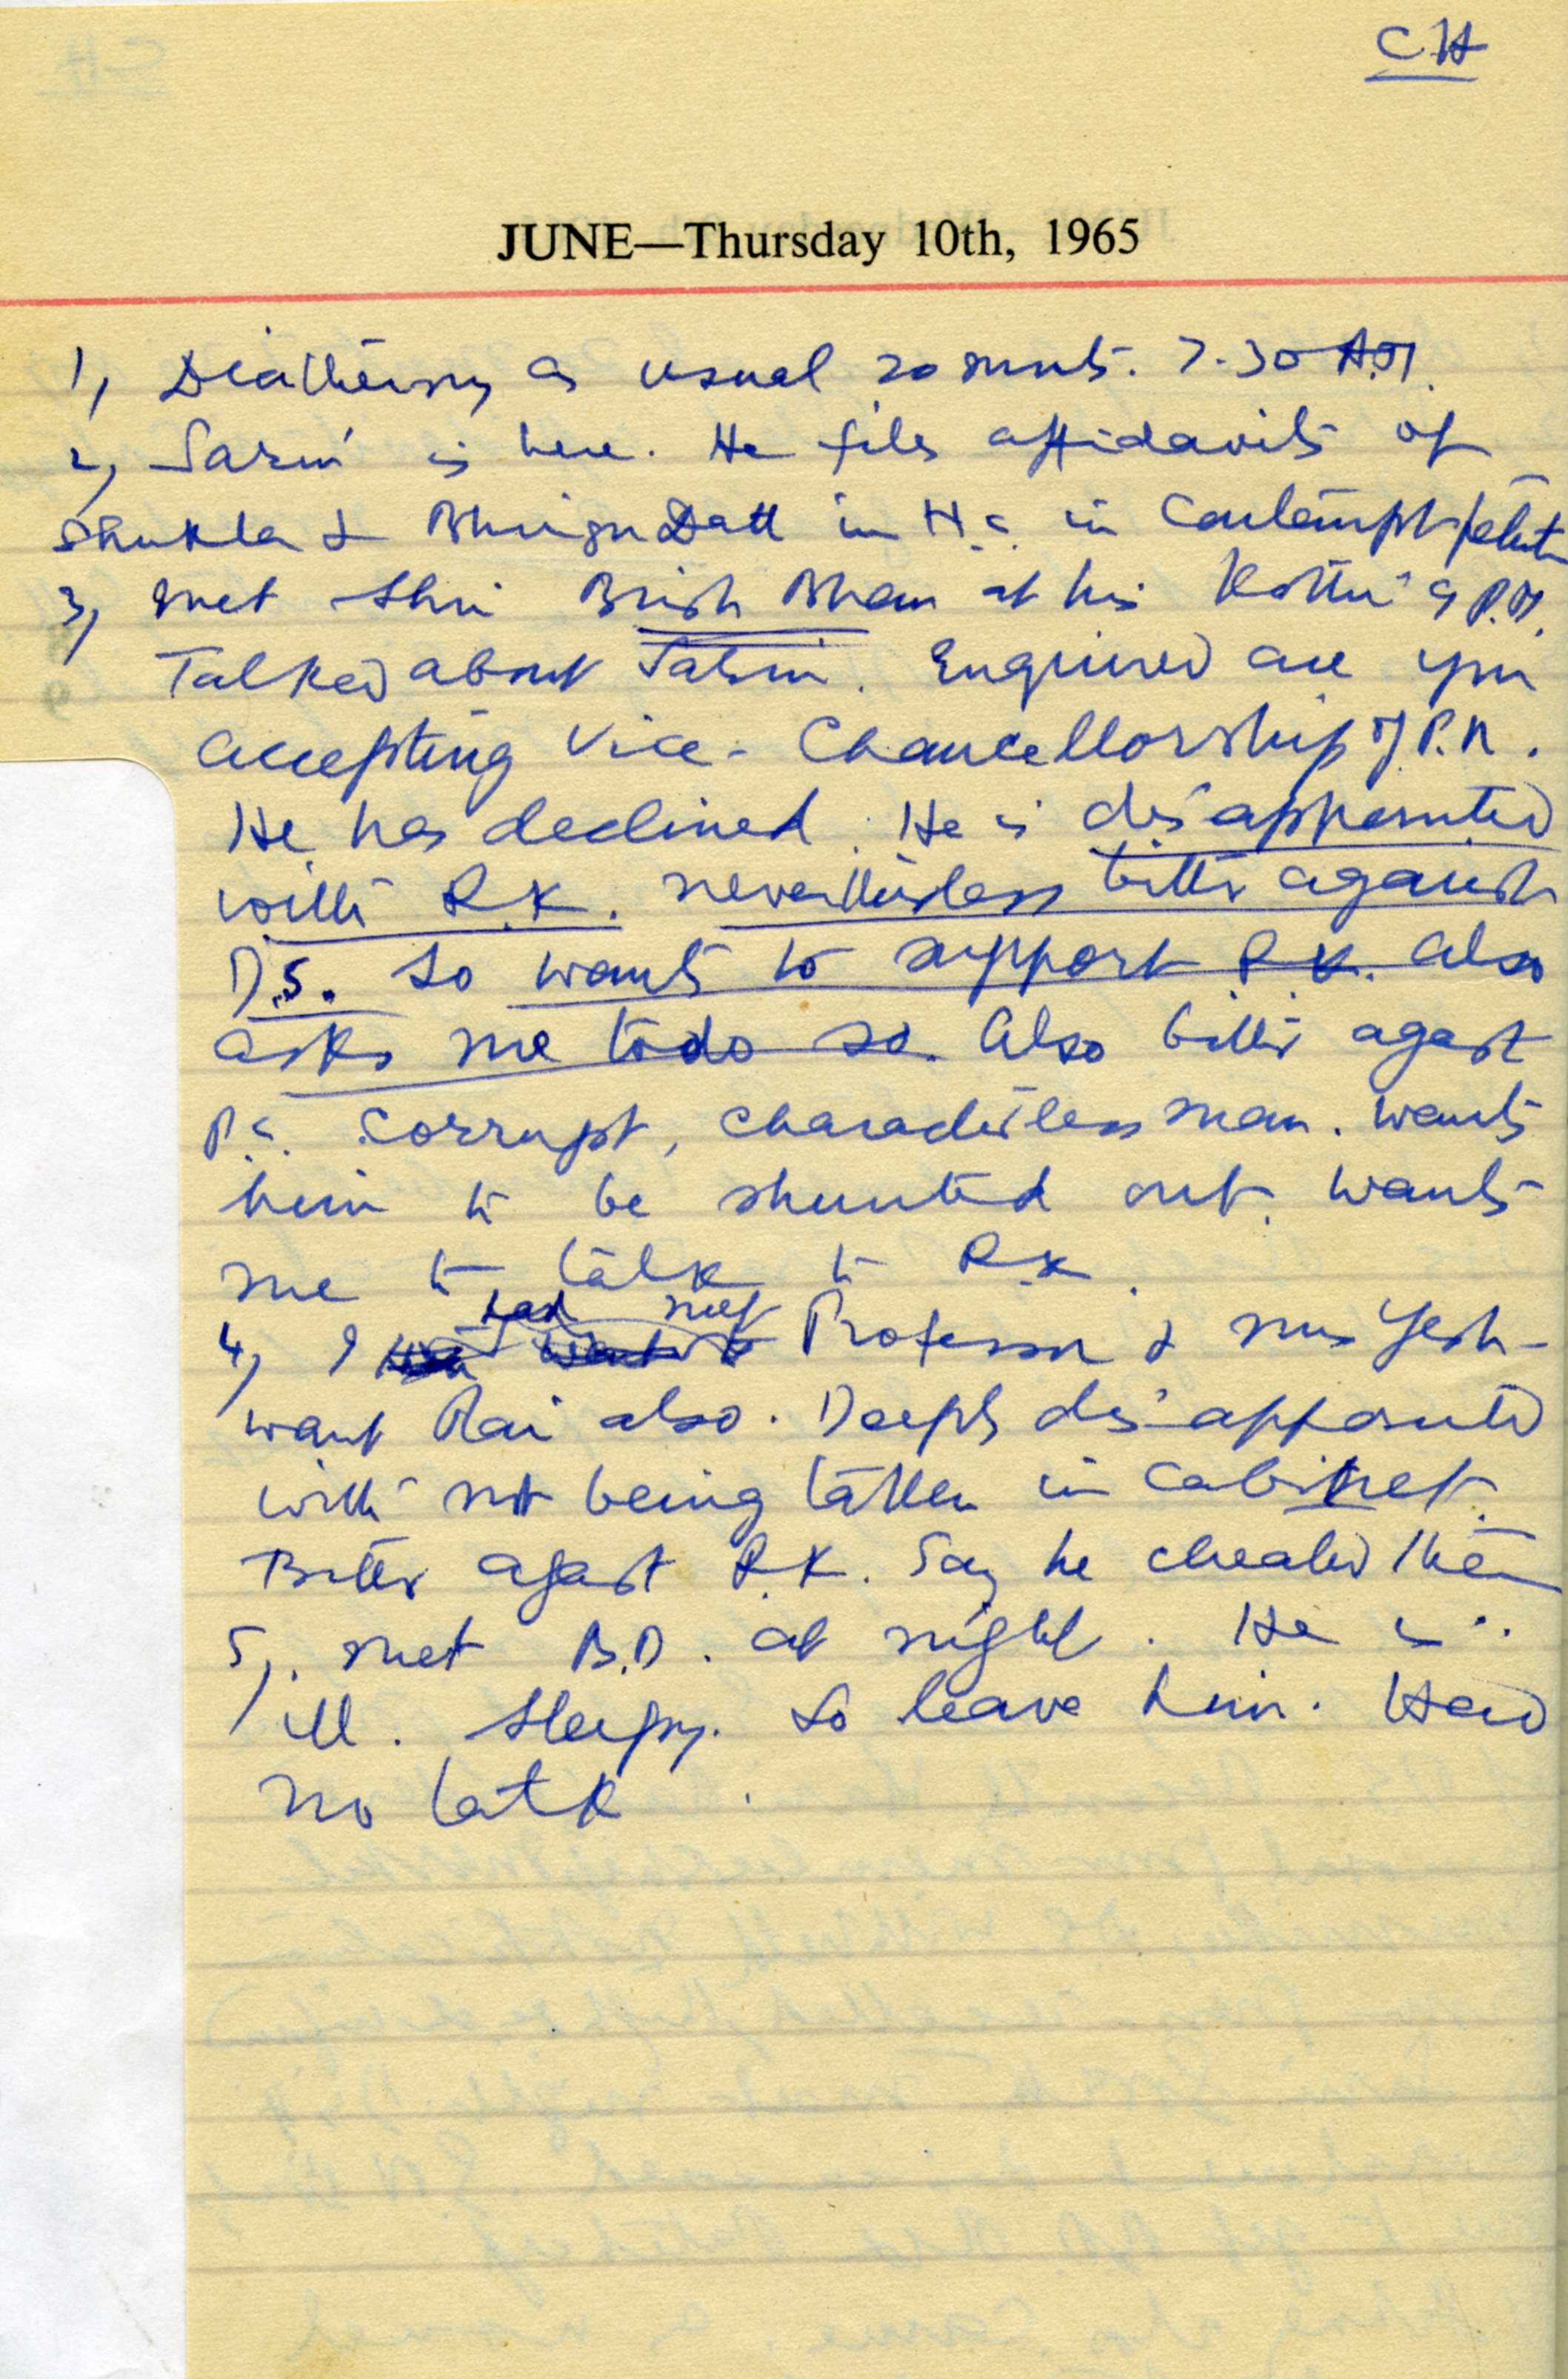 CH
JUNE—Thursday 10th, 1965
1, Diathermy as usual 20 munts. 7-30 A.M.
2, Sarin is here. He files affidavits of
Shukla & Bhrigu Datt in H.C. in Contempt
3, met Shri Brish Bhan at his Kothi 9 P.M.
Talked about. Enquired are you
accepting Vice-Chancellorship of
He has declined. He is disappointed
with R.K. nevertheless bitter against
D.S. So wants to support R.K. Also
asks me to do so. Also bitter agast
P.C. Corrupt, characterless man. Wants
him to be shunted out. Wants
me to talk to R.K.
4, I had met Professor & Mrs Yesh-
want Rai also. Deeply disappointed
with not being taken in Cabinet.
Bitter agast R.K. Say he cheated them
5, met B.D. at night. He is
ill. Sleepy. So leave him. Had
no talk.